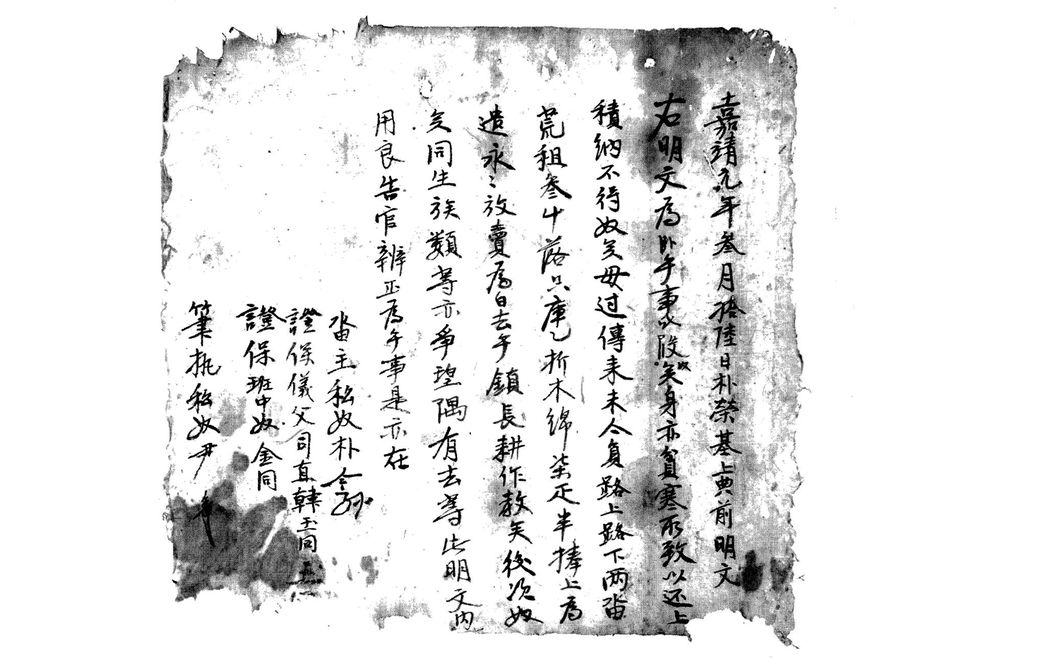 嘉靖元年叁月拾陸日朴榮基上典前明文
右明文爲臥乎事段奴矣身亦貧寒所致以还上
積納不得奴矣母过傳来来令員路上路下两畓
荒租叁斗落只庫乙折木綿柒疋半捧上爲
遣永〻放賣爲白去乎鎮長耕作教矣後次奴
矣同生族類等亦爭望隅有去等此明文內
用良告官辨正爲乎事是亦在
畓主私奴朴
證保儀父司直韓玉同
證保班中奴金同
筆執私奴尹